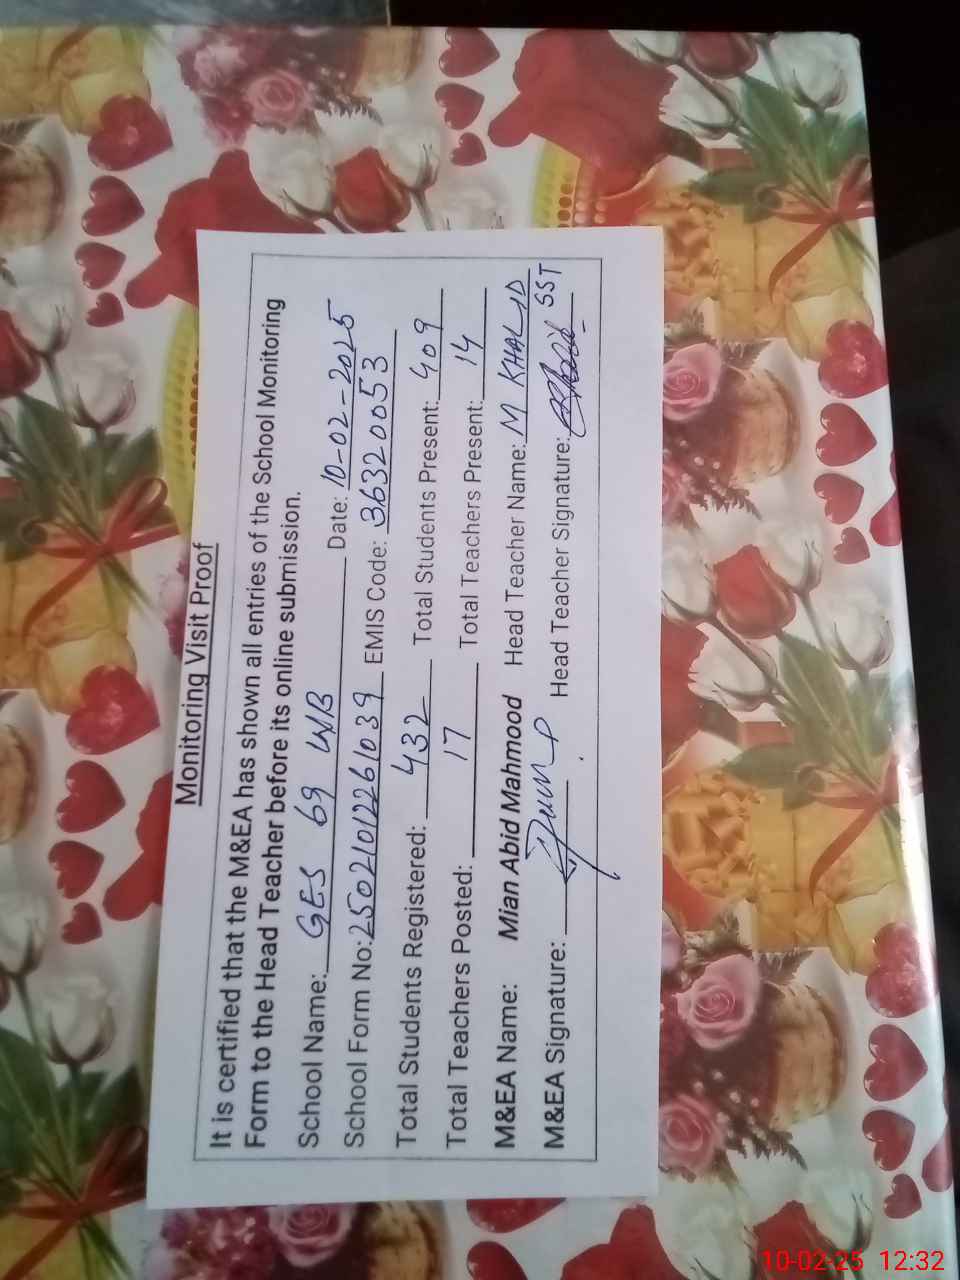 Monitoring Visit Proof
It is certified that the M&EA has shown all entries of the School Monitoring
Form to the Head Teacher before its online submission.
School Name: GES 69 WB Date: 10-02-2025
School Form No: 25021012261039 EMIS Code: 36320053
Total Students Registered: 432 Total Students Present: 409
Total Teachers Posted: 17 Total Teachers Present: 14
M&EA Name: Mian Abid Mahmood Head Teacher Name: M KHALID
M&EA Signature: Head Teacher Signature: SST
10-02-25 12:32